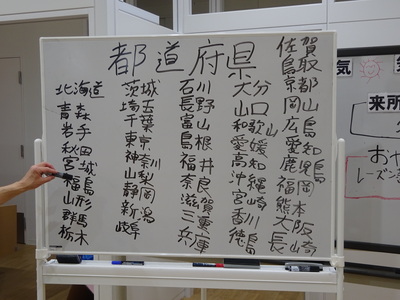 都道府県
北海道
青森
岩手
秋田
宮城
福島
山形
群馬
栃木
茨城
埼玉
千葉
東京
神奈川
山梨
静岡
新潟
岐阜
石川
長野
富山
島根
福井
奈良
滋賀
三重
兵庫
大分
山口
和歌山
愛媛
高知
沖縄
宮崎
香川
徳島
佐賀
鳥取
京都
岡山
広島
愛知
鹿児島
福岡
熊本
大阪
長崎
気
来所
おや
レーズン